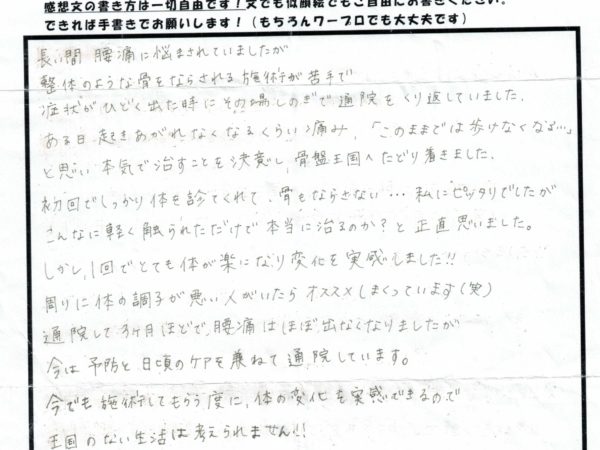 感想文の書き方は一切自由です！文でも似顔絵でもご自由にお書きください。
できれば手書きでお願いします！（もちろんワープロでも大丈夫です）
長い間 腰痛に悩まされていましたが
整体のような骨をならされる施術が苦手で
症状がひどく出た時にその場しのぎで通院をくり返していました．
ある日 起きあがれなくなるくらい痛み，「このままでは歩けなくなる…」
と思い 本気で治すことを決意し，骨盤王国へたどり着きました．
初回でしっかり体を診てくれて、骨をならさない… 私にピッタリでしたが
こんなに軽く触られただけで本当に治るのか？と 正直思いました。
しかし，1回でとても体が楽になり変化を実感しました!!
周りに体の調子が悪い人がいたらオススメしまくっています（笑）
通院して3ヶ月ほどで，腰痛はほぼ出なくなりましたが
今は予防と日頃のケアを兼ねて通院しています。
今でも施術してもらう度に，体の変化を実感できるので
王国のない生活は考えられません!!!